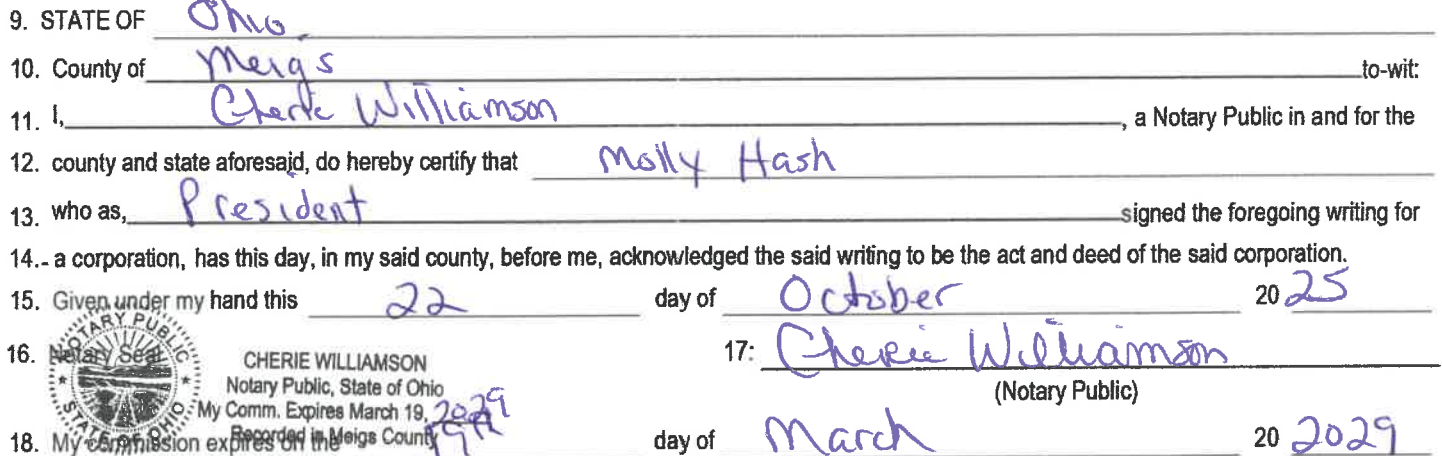 9. STATE OF Ohio
10. County of Meigs to-wit:
11. I, Cherie Williamson, a Notary Public in and for the
12. county and state aforesaid, do hereby certify that Molly Hash
13. who as, President signed the foregoing writing for
14.- a corporation, has this day, in my said county, before me, acknowledged the said writing to be the act and deed of the said corporation.
15. Given under my hand this 22 day of October 20 25
16. Notary Seal 17: Cherie Williamson
NOTARY PUBLIC
STATE OF OHIO
CHERIE WILLIAMSON
(Notary Public)
Notary Public, State of Ohio
My Comm. Expires March 19, 2029
Recorded in Meigs County
18. My commission expires on the 19th day of March 20 2029